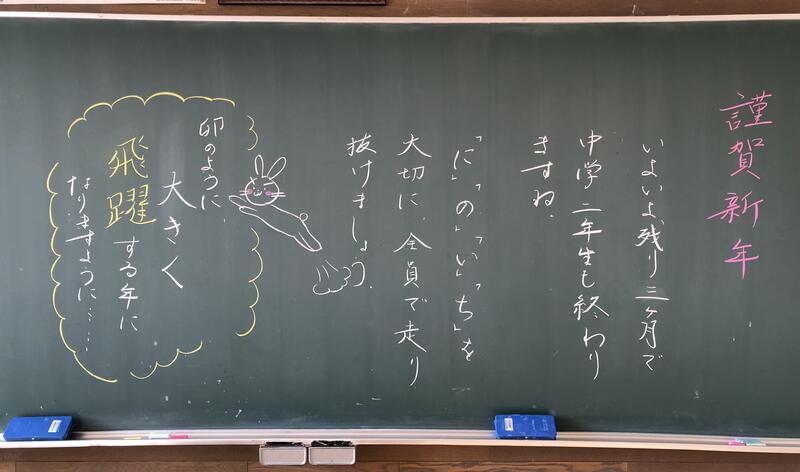 謹賀新年
いよいよ、残り三ヶ月で
中学二年生も終わり
ますね。
「に」「の」「い」「ち」を
大切に、全員で走り
抜けましょう。
卯のように、
大きく
飛躍する年に
なりますように……